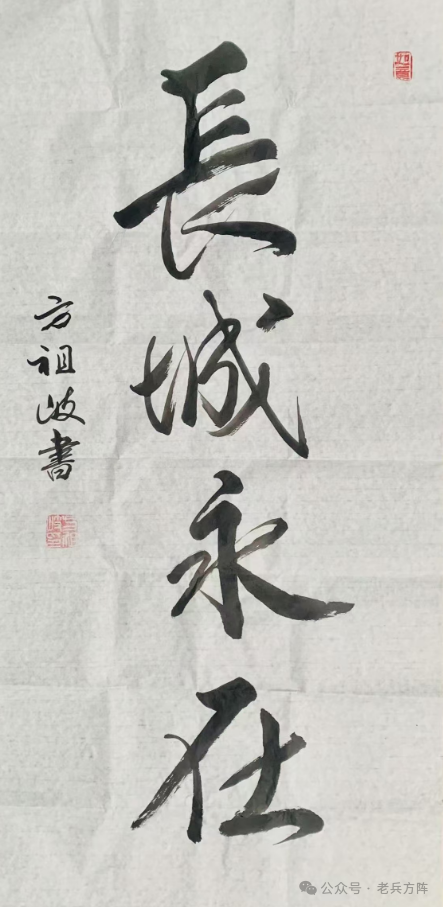 長城永在
方祖岐書
公众号 · 老兵方阵